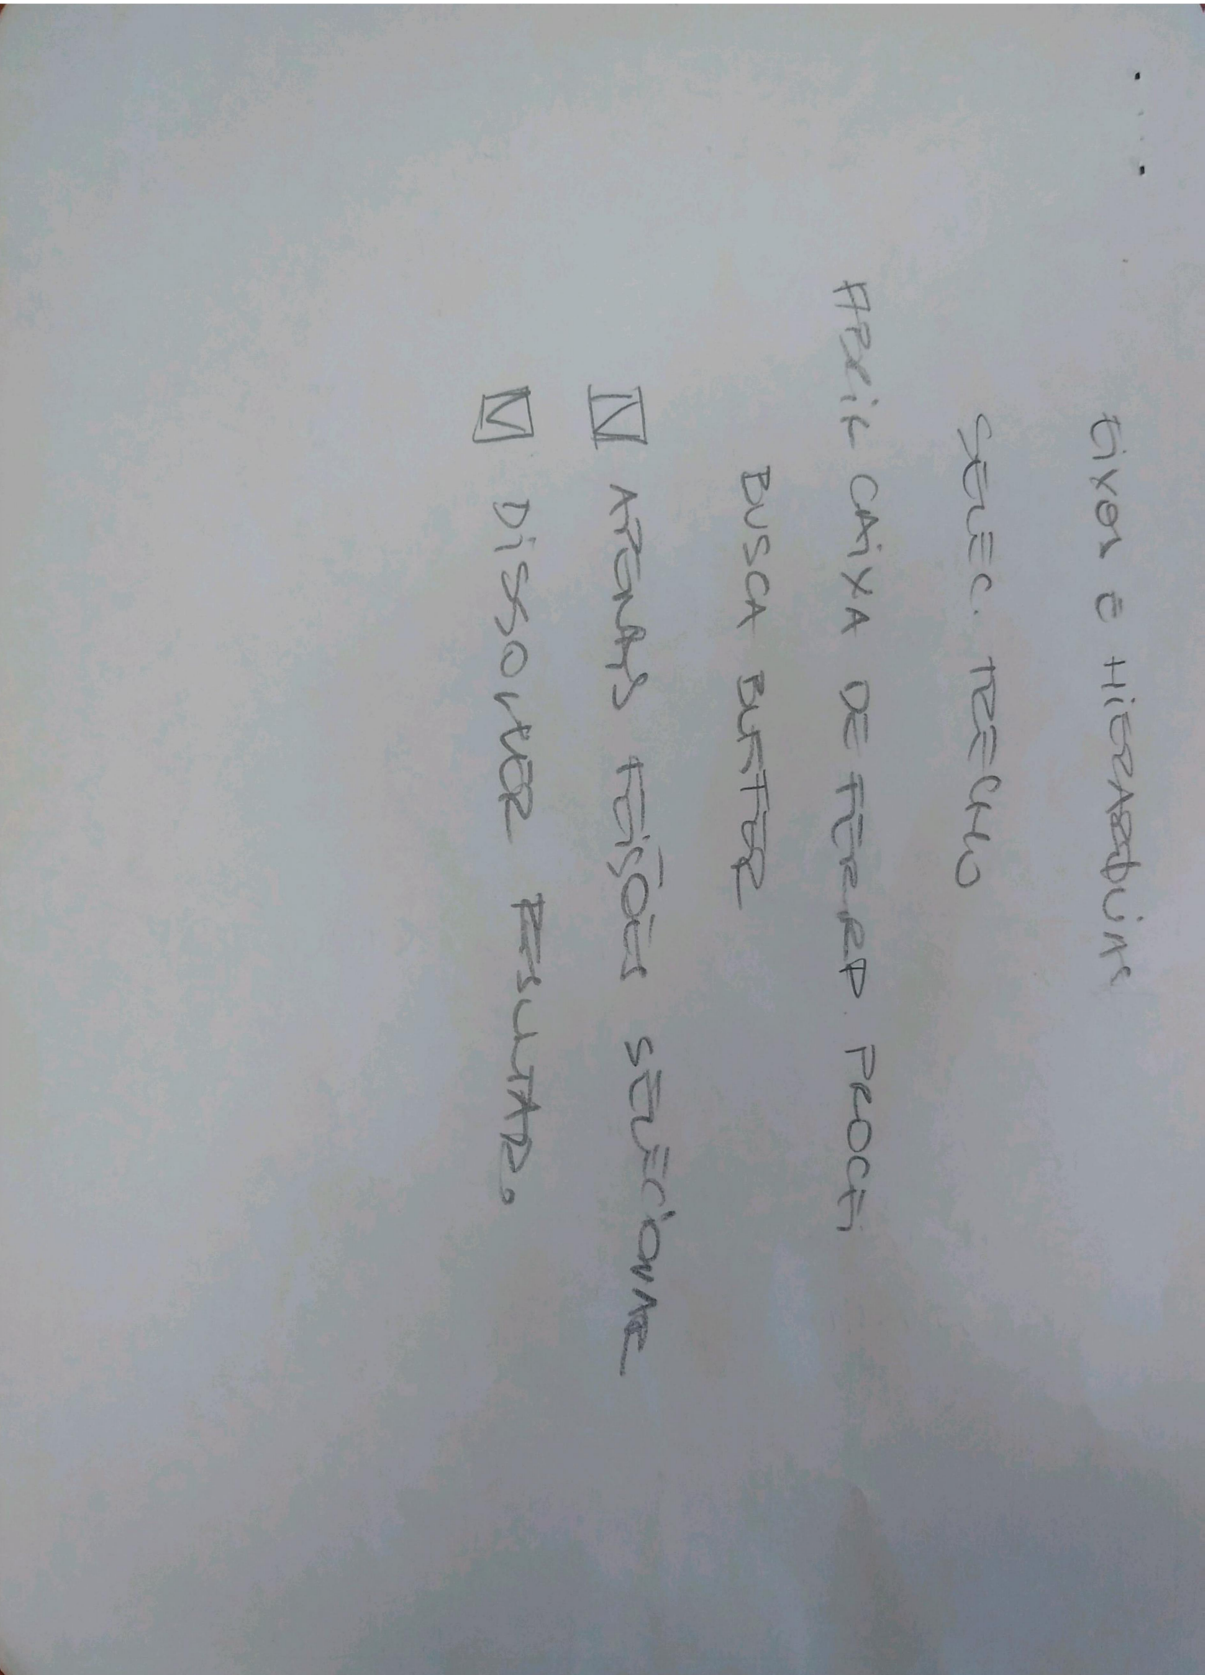 Eixos e HiERARQUiAS
SELEC. TRECHO
ABRiR CAiXA DE FERR. PROCE.
BUSCA BUFFER
APENAS FEiÇÕES SELECiONAR
DiSSOLVER RESULTAD.